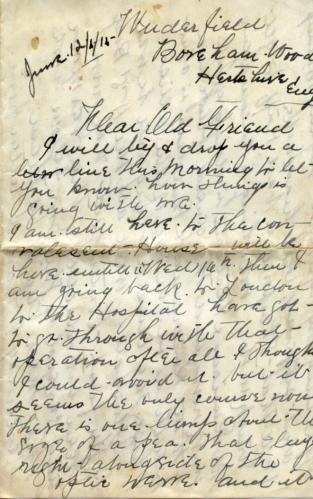 June 12/6/15-
Wuderfield
Boreham-Wood
Hertshire
Eng
Dear Old Friend
I will try & drop you a
line this Morning to let
you know how things is
going with me.
I am still here to the con
valescent-House will be
here untill (Wed) 16th. Then I
am going back to London
to the Hospital have got-
to go through with that-
operation after all I though
I could avoid it but it
seems the only course now
There is one lump about-th
size of a pea. That-lays
right-alongside of the
optic nerve and it